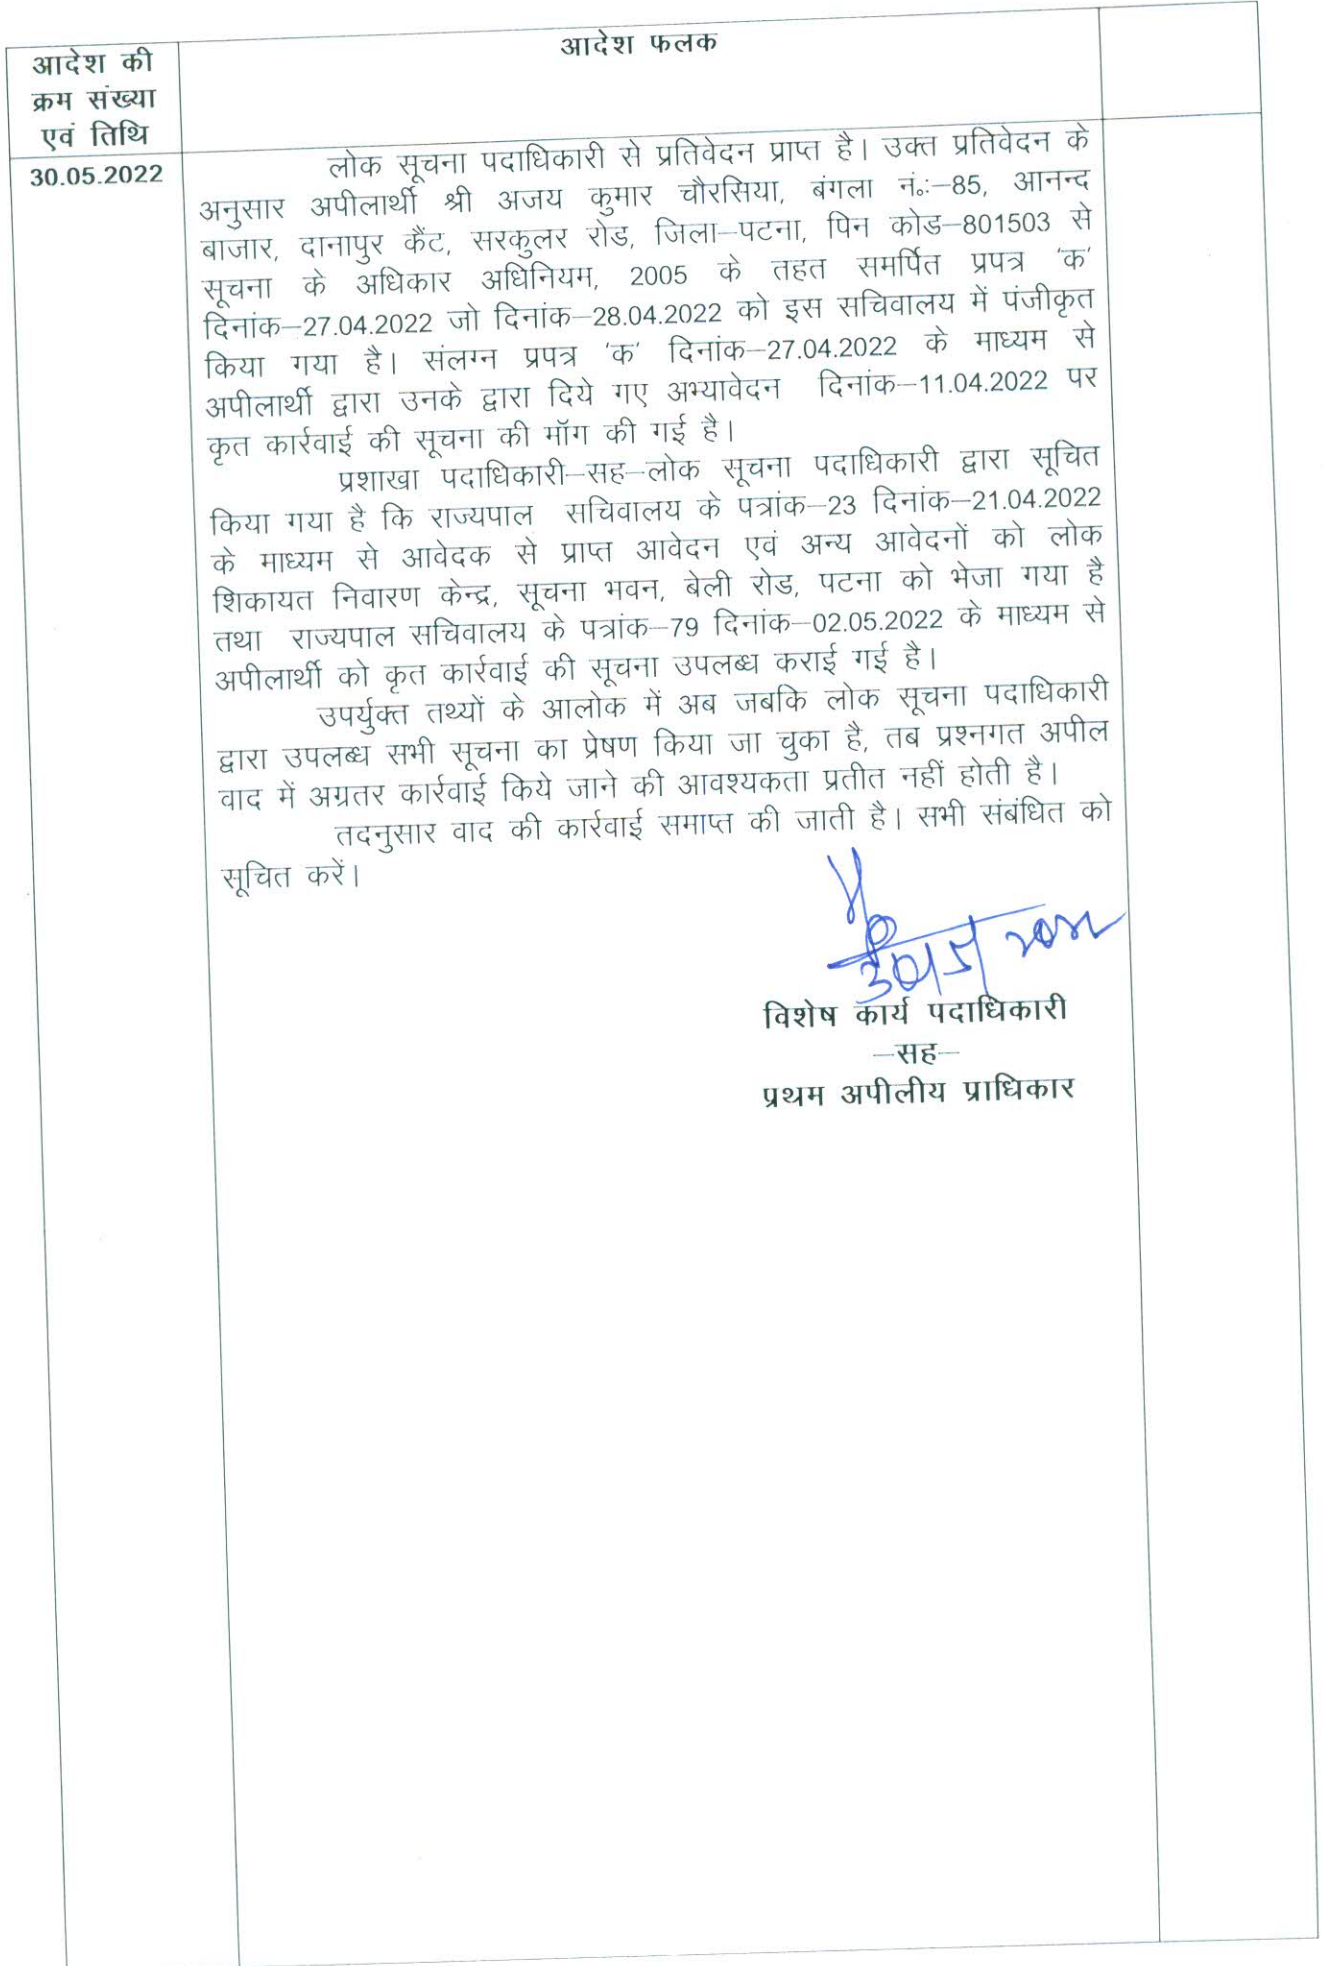 आदेश की
क्रम संख्या
एवं तिथि
आदेश फलक
30.05.2022
लोक सूचना पदाधिकारी से प्रतिवेदन प्राप्त है। उक्त प्रतिवेदन के
अनुसार अपीलार्थी श्री अजय कुमार चौरसिया, बंगला नं॰:–85, आनन्द
बाजार, दानापुर कैंट, सरकुलर रोड, जिला–पटना, पिन कोड–801503 से
सूचना के अधिकार अधिनियम, 2005 के तहत समर्पित प्रपत्र 'क'
दिनांक–27.04.2022 जो दिनांक–28.04.2022 को इस सचिवालय में पंजीकृत
किया गया है। संलग्न प्रपत्र 'क' दिनांक–27.04.2022 के माध्यम से
अपीलार्थी द्वारा उनके द्वारा दिये गए अभ्यावेदन दिनांक–11.04.2022 पर
कृत कार्रवाई की सूचना की मॉग की गई है।
प्रशाखा पदाधिकारी–सह–लोक सूचना पदाधिकारी द्वारा सूचित
किया गया है कि राज्यपाल सचिवालय के पत्रांक–23 दिनांक–21.04.2022
के माध्यम से आवेदक से प्राप्त आवेदन एवं अन्य आवेदनों को लोक
शिकायत निवारण केन्द्र, सूचना भवन, बेली रोड, पटना को भेजा गया है
तथा राज्यपाल सचिवालय के पत्रांक–79 दिनांक–02.05.2022 के माध्यम से
अपीलार्थी को कृत कार्रवाई की सूचना उपलब्ध कराई गई है।
उपर्युक्त तथ्यों के आलोक में अब जबकि लोक सूचना पदाधिकारी
द्वारा उपलब्ध सभी सूचना का प्रेषण किया जा चुका है, तब प्रश्नगत अपील
वाद में अग्रतर कार्रवाई किये जाने की आवश्यकता प्रतीत नहीं होती है।
तदनुसार वाद की कार्रवाई समाप्त की जाती है। सभी संबंधित को
सूचित करें।
विशेष कार्य पदाधिकारी
–सह–
प्रथम अपीलीय प्राधिकार